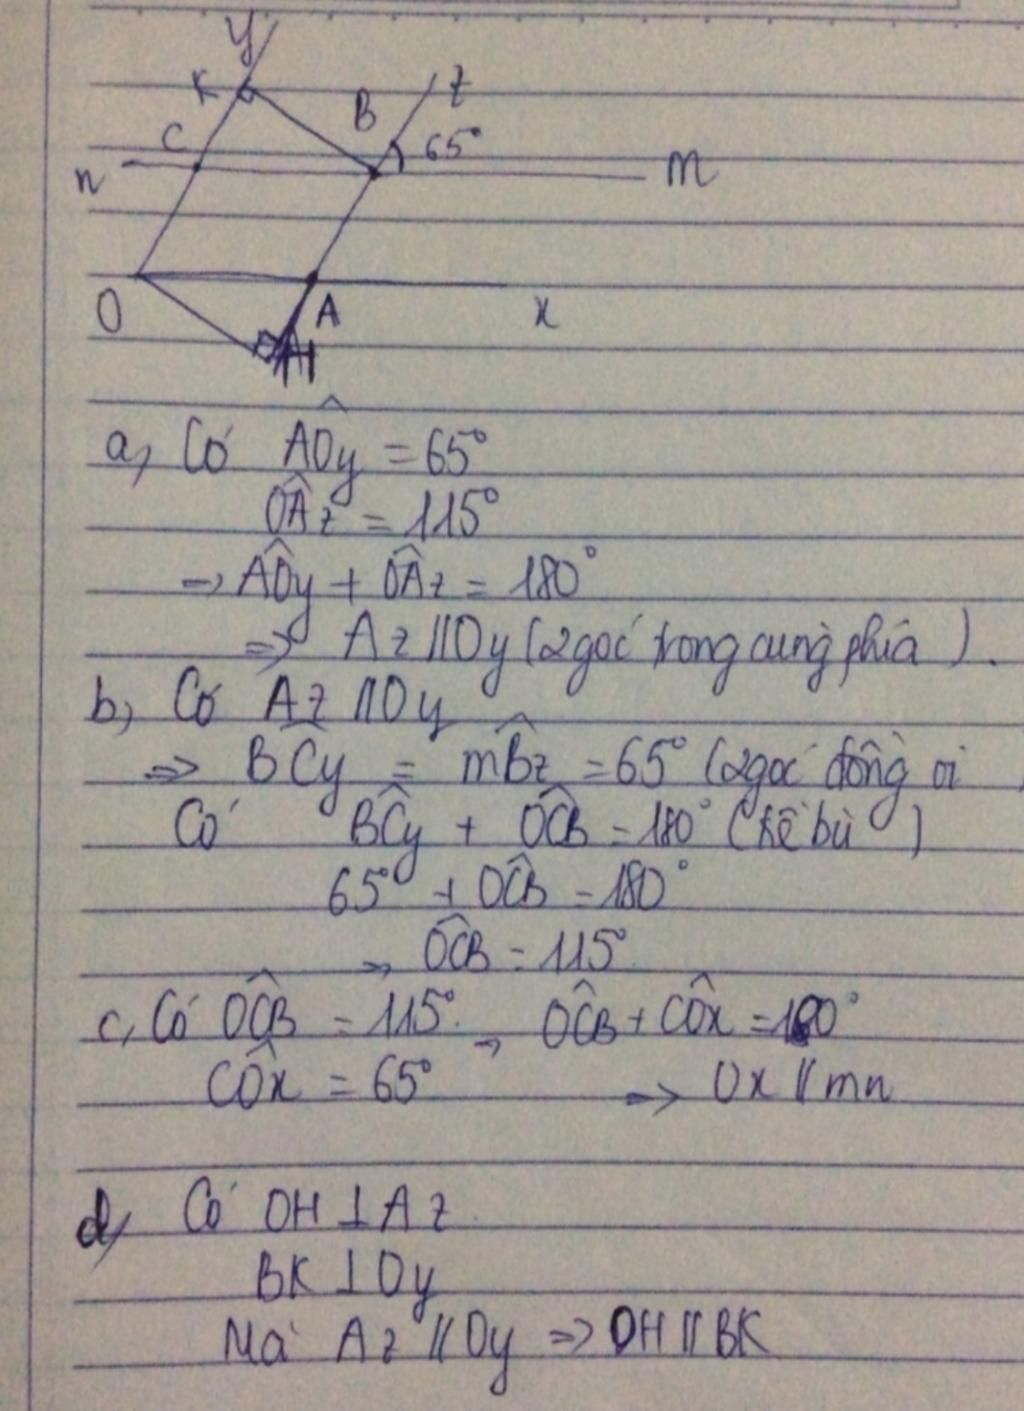 y
K
z
B
C
65°
n
m
O
A
x
H
a, Có AÔy = 65°
OÂz = 115°
→ AÔy + OÂz = 180°
⇒ Az // Oy (2 góc trong cùng phía).
b, Có Az // Oy
⇒ BĈy = mB̂z = 65° (2 góc đồng vị
Có BĈy + OĈB = 180° (kề bù)
65° + OĈB = 180°
→ OĈB = 115°
c, Có OĈB = 115° → OĈB + CÔx = 180°
CÔx = 65° ⇒ Ox // mn
d, Có OH ⊥ Az
BK ⊥ Oy
Mà Az // Oy ⇒ OH // BK